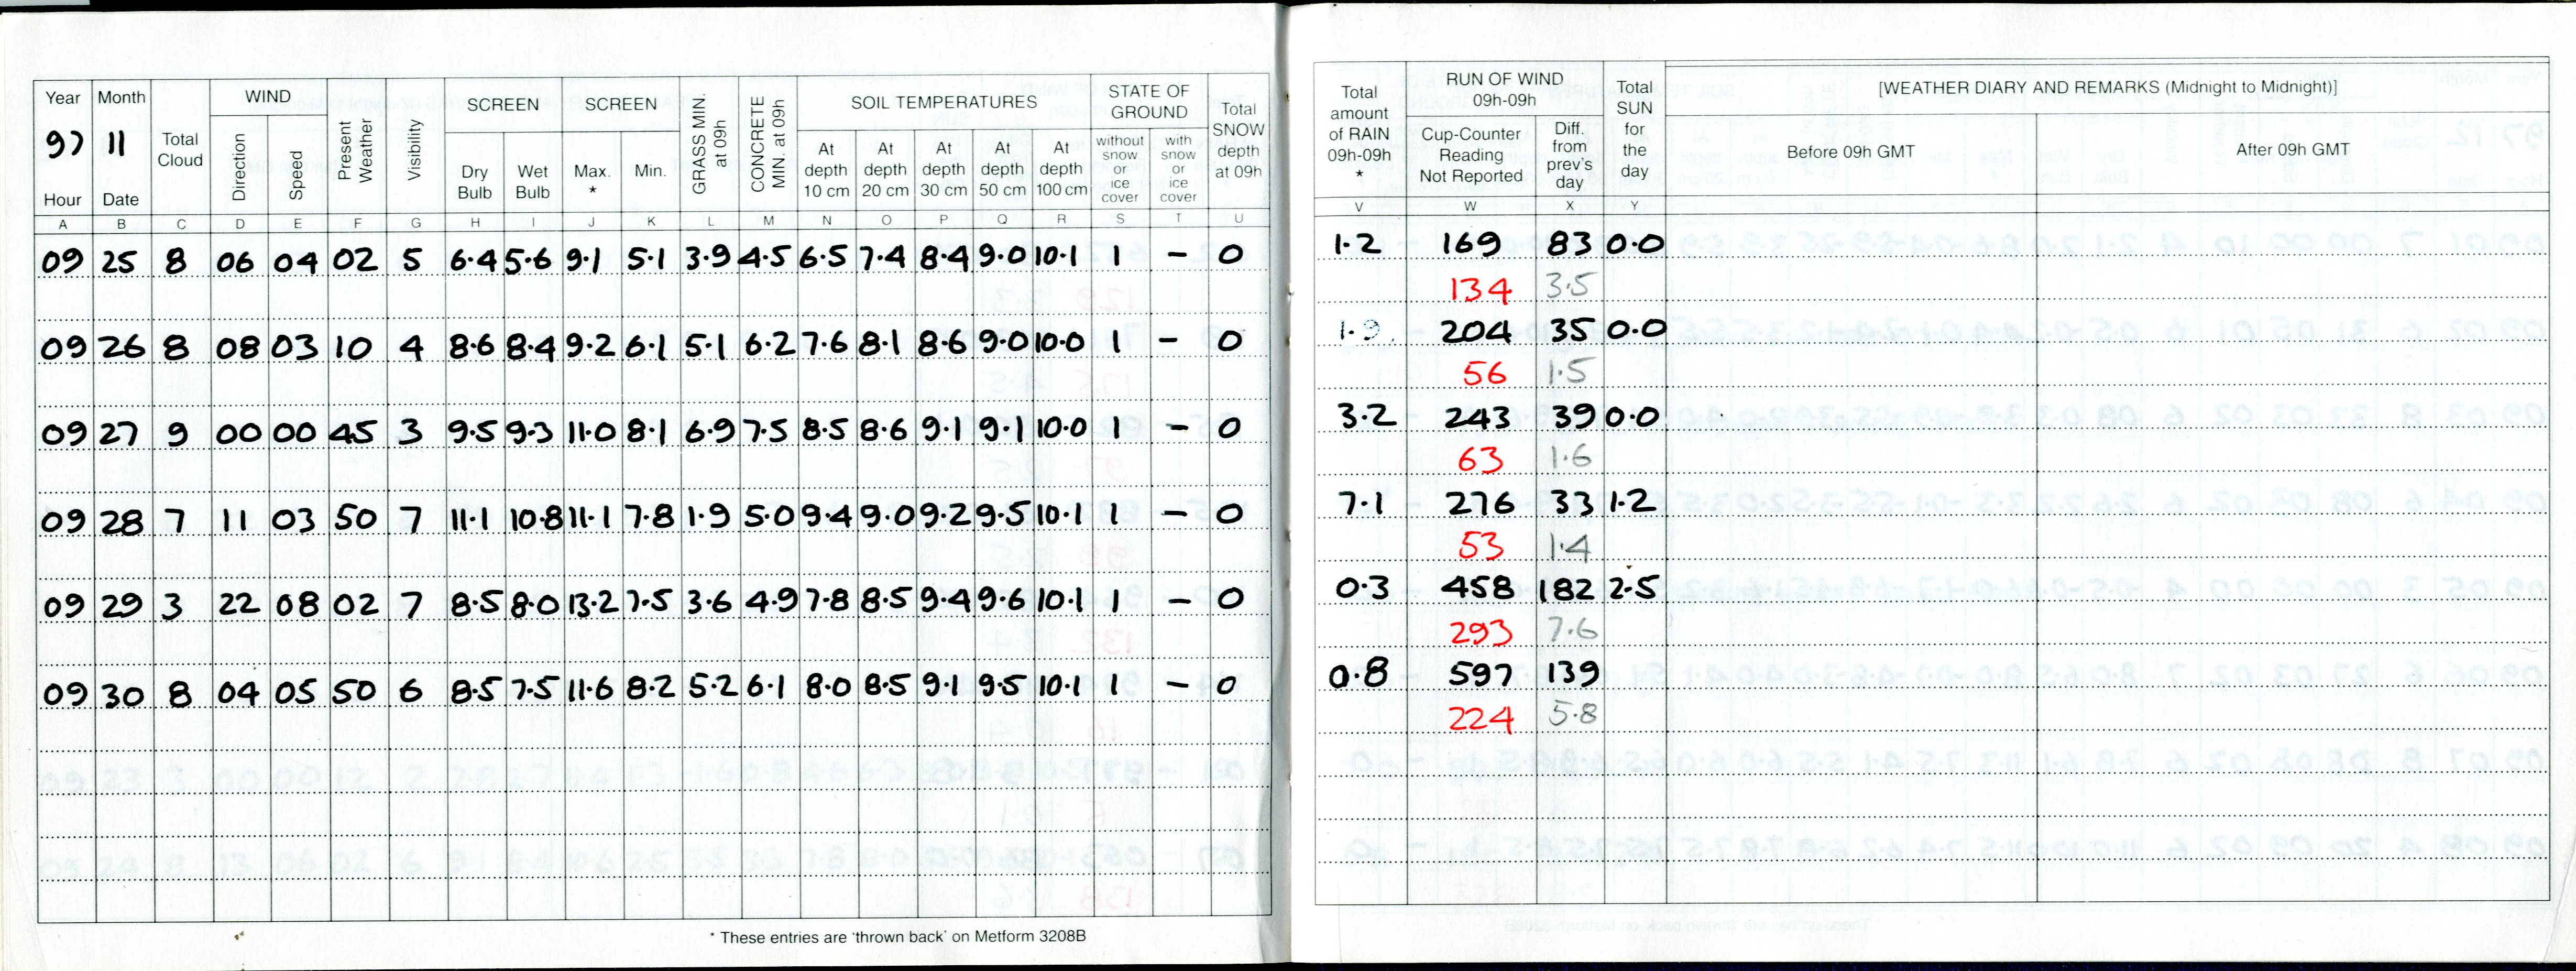 Year Month Total Cloud WIND Present Weather Visibility SCREEN SCREEN GRASS MIN. at 09h CONCRETE MIN. at 09h SOIL TEMPERATURES STATE OF GROUND Total SNOW depth at 09h
97 11 Direction Speed Dry Bulb Wet Bulb Max. * Min. At depth 10 cm At depth 20 cm At depth 30 cm At depth 50 cm At depth 100 cm without snow or ice cover with snow or ice cover
Hour Date
A B C D E F G H I J K L M N O P Q R S T U
09 25 8 06 04 02 5 6.4 5.6 9.1 5.1 3.9 4.5 6.5 7.4 8.4 9.0 10.1 1 – 0
09 26 8 08 03 10 4 8.6 8.4 9.2 6.1 5.1 6.2 7.6 8.1 8.6 9.0 10.0 1 – 0
09 27 9 00 00 45 3 9.5 9.3 11.0 8.1 6.9 7.5 8.5 8.6 9.1 9.1 10.0 1 – 0
09 28 7 11 03 50 7 11.1 10.8 11.1 7.8 1.9 5.0 9.4 9.0 9.2 9.5 10.1 1 – 0
09 29 3 22 08 02 7 8.5 8.0 13.2 7.5 3.6 4.9 7.8 8.5 9.4 9.6 10.1 1 – 0
09 30 8 04 05 50 6 8.5 7.5 11.6 8.2 5.2 6.1 8.0 8.5 9.1 9.5 10.1 1 – 0
* These entries are 'thrown back' on Metform 3208B
Total amount of RAIN 09h-09h * RUN OF WIND 09h-09h Total SUN for the day [WEATHER DIARY AND REMARKS (Midnight to Midnight)]
Cup-Counter Reading Not Reported Diff. from prev's day Before 09h GMT After 09h GMT
V W X Y
1.2 169 83 0.0
134 3.5
1.9 204 35 0.0
56 1.5
3.2 243 39 0.0
63 1.6
7.1 276 33 1.2
53 1.4
0.3 458 182 2.5
293 7.6
0.8 597 139
224 5.8